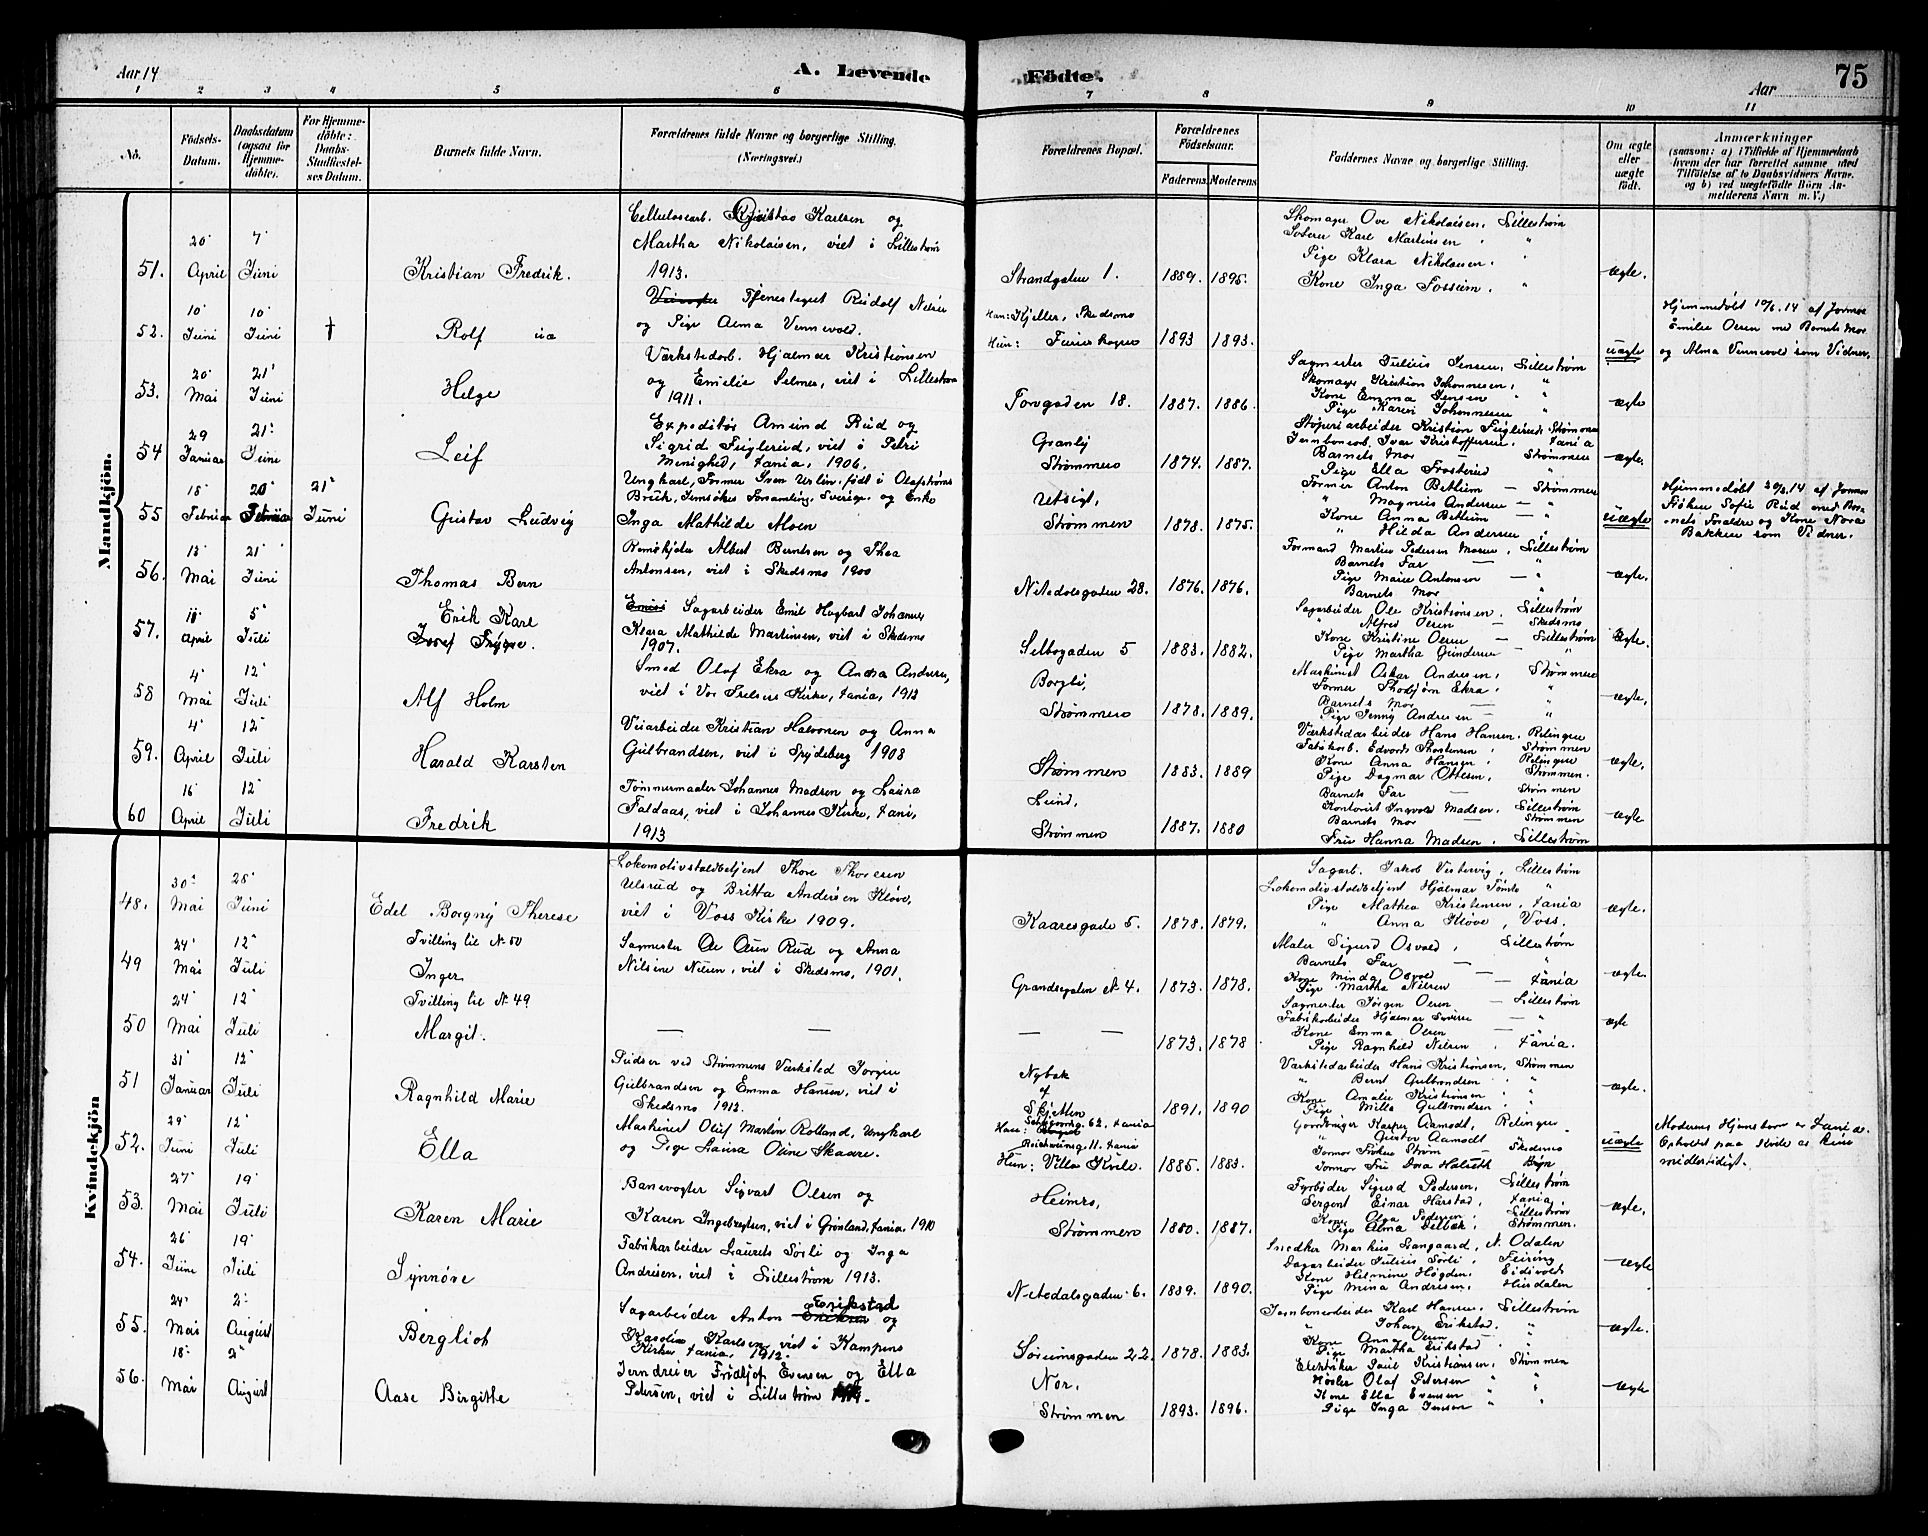 Aar 14
A. Levende
Födte.
Aar
75
1 2 3 4 5 6 7 8 9 10 11
No.
Födsels-Datum.
Daabsdatum (ogsaa for Hjemmedöbte).
For Hjemmedöbte: Daabs-Stadfæstelses Datum.
Barnets fulde Navn.
Forældrenes fulde Navne og borgerlige Stilling.
(Næringsvei.)
Forældrenes Bopæl.
Forældrenes Födselsaar.
Faderens. Moderens.
Faddernes Navne og borgerlige Stilling.
Om ægte eller uægte födt.
Anmærkninger
(saasom: a) i Tilfælde af Hjemmedaab
hvem der har forrettet samme med
Tilföielse af to Daabsvidners Navne.
og b) ved uægtefödte Börn An-
melderens Navn m. V.)
Mandkjön.
51. 20' April 7' Juni Kristian Fredrik.
Cellulosearb. Karlsen og
Martha Nikolaisen, viet i Lillestrøm
1913.
Strandgaten 1. 1889. 1895.
Skomager Ove Nikolaisen, Lillestrøm
Karl Martinsen "
Pige Klara Nikolaisen. "
Kone Inga Fossum. "
ægte.
52. 10' Juni 10' Juni † Rolf
Tjenestegut Rudolf
og Pige Alma Vennevold.
Han: Kjeller, Skedsmo
Hun: 1893 1893.
uægte
Hjemmedøbt 10/6.14 af Jormor
Emilie Olsen med Barnets Mor
og Alma Vennevold som Vidner.
53. 20' Mai 21' Juni Helge
Værkstedarb. Hjalmar Kristiansen
og Emilie Selmer, viet i Lillestrøm
1911.
Torvgaden 18. 1887. 1886.
Sagmester Julius Jensen, Lillestrøm
Skomager Kristian Johannesen, "
Kone Emma Jensen "
Pige Karen Johannesen "
ægte
54 29 Januar 21' Juni Leif
Expeditør Amund Rud og
Sigrid Fuglerud, viet i Petri
Menighed, Xania, 1906.
Granly
Strømmen 1874. 1887.
Støperiarbeider Kristian Fuglerud. Strømmen
Jernbanearb. Ivar Kristoffersen. Xania
Barnets Mor — Strømmen
Pige Ella "
ægte.
55 18' Februar 20' Februar 21' Juni Gustav Ludvig
Ungkarl, Former Sven Urlin, født i Olofstrøms
Bruk, Forsamling, Sverige, og Enke
Inga Mathilde Moen
Utsigt,
Strømmen 1878. 1875.
Former Anton Bethum — Strømmen
" Magnus Andersen — "
Kone Anna Bethum — "
" Hilda Andersen "
uægte
Hjemmedøbt af Jormor
Frøken Sofie Rud med Bar-
nets Foraldre og Kone Nora
Bakken som Vidner.
56. 18' Mai 21' Juni Thomas Bern
Albert Berntsen og Thea
Antonsen, viet i Skedsmo 1900
Nitedalsgaden 28. 1876. 1876.
Formand Martin Pedersen Moen, Lillestrøm
Barnets Far — "
Pige Marie Antonsen — "
Barnets Mor "
ægte.
57. 18' April 5' Juli Erik Karl
Josef Trygve.
Sagarbeider Emil Hagbart Johannes
Klara Mathilde Martinsen, viet i Skedsmo
1907.
Selbogaden 5 1883. 1882.
Sagarbeider Ole Kristiansen. Lillestrøm
" Alfred Olsen — Skedsmo
Kone Kristine Olsen — Lillestrøm
Pige Martha Gundersen — "
Ægte.
58 4' Mai 12' Juli Alf Holm
Smed Olaf Ekra og Anna Andersen,
viet i Vor Frelsers Kirke, Xania, 1912
Borgli,
Strømmen 1878. 1889.
Maskinist Oskar Andresen, Strømmen
Former Thobjørn Ekra. "
Barnets Mor — "
Pige Jenny Andresen — "
ægte,
59. 4' April 12' Juli Harald Karsten
Veiarbeider Kristian Halvorsen og Anna
Gulbrandsen, viet i Spydeberg 1908
Strømmen 1883. 1889
Værkstedarbeider Hans Hansen. Rælingen
Fabrikarb. Edvard Thostensen. Strømmen
Kone Anna Hansen. Rælingen
Pige Dagmar Ottesen, Strømmen.
ægte,
60 16' April 12' Juli Fredrik
Tømmermaaler Johannes Madsen og Laura
Faldaas, viet i Johannes Kirke, Xania,
1913
Lund,
Strømmen 1887. 1880
Barnets Far — Strømmen
Kontorist Ingvald Madsen. Lillestrøm
Barnets Mor — Strømmen
Fru Hanna Madsen. Lillestrøm
ægte
Kvindekjön
48. 30' Mai 28' Juni Edel Borgny Therese
Lokomotivstaldbetjent Thore Thoresen
Ulsrud og Britta Andersen Kløve,
viet i Voss Kirke 1909.
Kaaresgade 5. 1878. 1879.
Sagarb. Jakob Lillestrøm
Lokomotivstaldbetjent Hjalmar "
Pige Mathea Kristensen, Xania
" Anna Kløve, Voss.
ægte.
49 24' Mai 12' Juli Tvilling til No 50
Inger
Sagmester Ole Olsen Rud og Anna
Nilsine Nilsen, viet i Skedsmo, 1901.
Grandsgaten No 4. 1873. 1878.
Maler Sigurd Osvold, Lillestrøm
Barnets Far — "
Kone Minda Osvold — "
Pige Martha Nilsen — Xania
ægte.
50 24' Mai 12' Juli Tvilling til No 49
Margit.
— —
— — 1873. 1878
Sagmester Jörgen Olsen — Lillestrøm
Fabrikarbeider Hjalmar — "
Kone Emma Olsen — "
Pige Ragnhild Nilsen, Xania.
ægte
51 31' Januar 12' Juli Ragnhild Marie
Pudser ved Strømmens Værksted Jørgen
Gulbrandsen og Emma Hansen, viet i
Skedsmo 1912.
Nybak
af
Skjetten 1891. 1890
Værkstedarbeider Hans Kristiansen, Strømmen
" Bernt Gulbrandsen "
Kone Amalie Kristiansen "
Pige Milla Gulbrandsen "
ægte.
52. 29' Juni 12' Juli Ella
Maskinist Oluf Martin Rolland, Ungkarl
og Pige Laura Oline Skaare.
Han: 62, Xania
11. Xania
Hun: Villa Kvile. 1885. 1883.
Gaardbruger Kasper Aamodt, Rælingen
" Gustav Aamodt "
Jormor Frøken Strøm — Skedsmo
Jormor Fru Dora
uægte
Moderens Hjemstavn er Xania.
Opholdet paa Stedet er kun
midlertidigt.
53. 27' Mai 19' Juli Karen Marie
Banevogter Sigvart Olsen og
Karen Ingebregtsen, viet i Grønland, Xania. 1910
Heimro,
Strømmen 1880. 1887.
Fyrbøder Sigurd Pedersen, Lillestrøm
Sergent Einar Harstad, Xania,
Kone Olga Pedersen, Lillestrøm
Pige Alma Strømmen.
ægte,
54. 26' Juni 19' Juli Synnöve
Fabrikarbeider Laurits Sørli og Inga
Andresen, viet i Lillestrøm 1913.
Nitedalsgaden 6. 1889. 1890.
Snedker Markus Langaard, N. Odalen
Dagarbeider Julius Sørli, Feiring
Kone Helmine Høgden, Eidsvold
Pige Mina Andresen, Hurdalen
ægte
55. 24' Mai 2' August Bergliot
Sagarbeider Anton Erikstad og
Karoline Karlsen, viet i Kampens
Kirke Xania, 1912.
Sørumsgaden 22. 1878. 1883.
Jernbanearbeider Karl Hansen. Lillestrøm
" Johan Erikstad. "
Kone Anna Olsen "
Pige Martha Erikstad "
ægte.
56. 18' Mai 2' August Aase Birgithe
Jerndreier Fridtjof Evensen og Ella
Petersen, viet i Lillestrøm
Nor,
Strømmen 1893. 1896.
Elektriker Paul Kristiansen. Strømmen
Høvler Olaf Petersen "
Kone Ella Evensen "
Pige Inga Jensen "
ægte